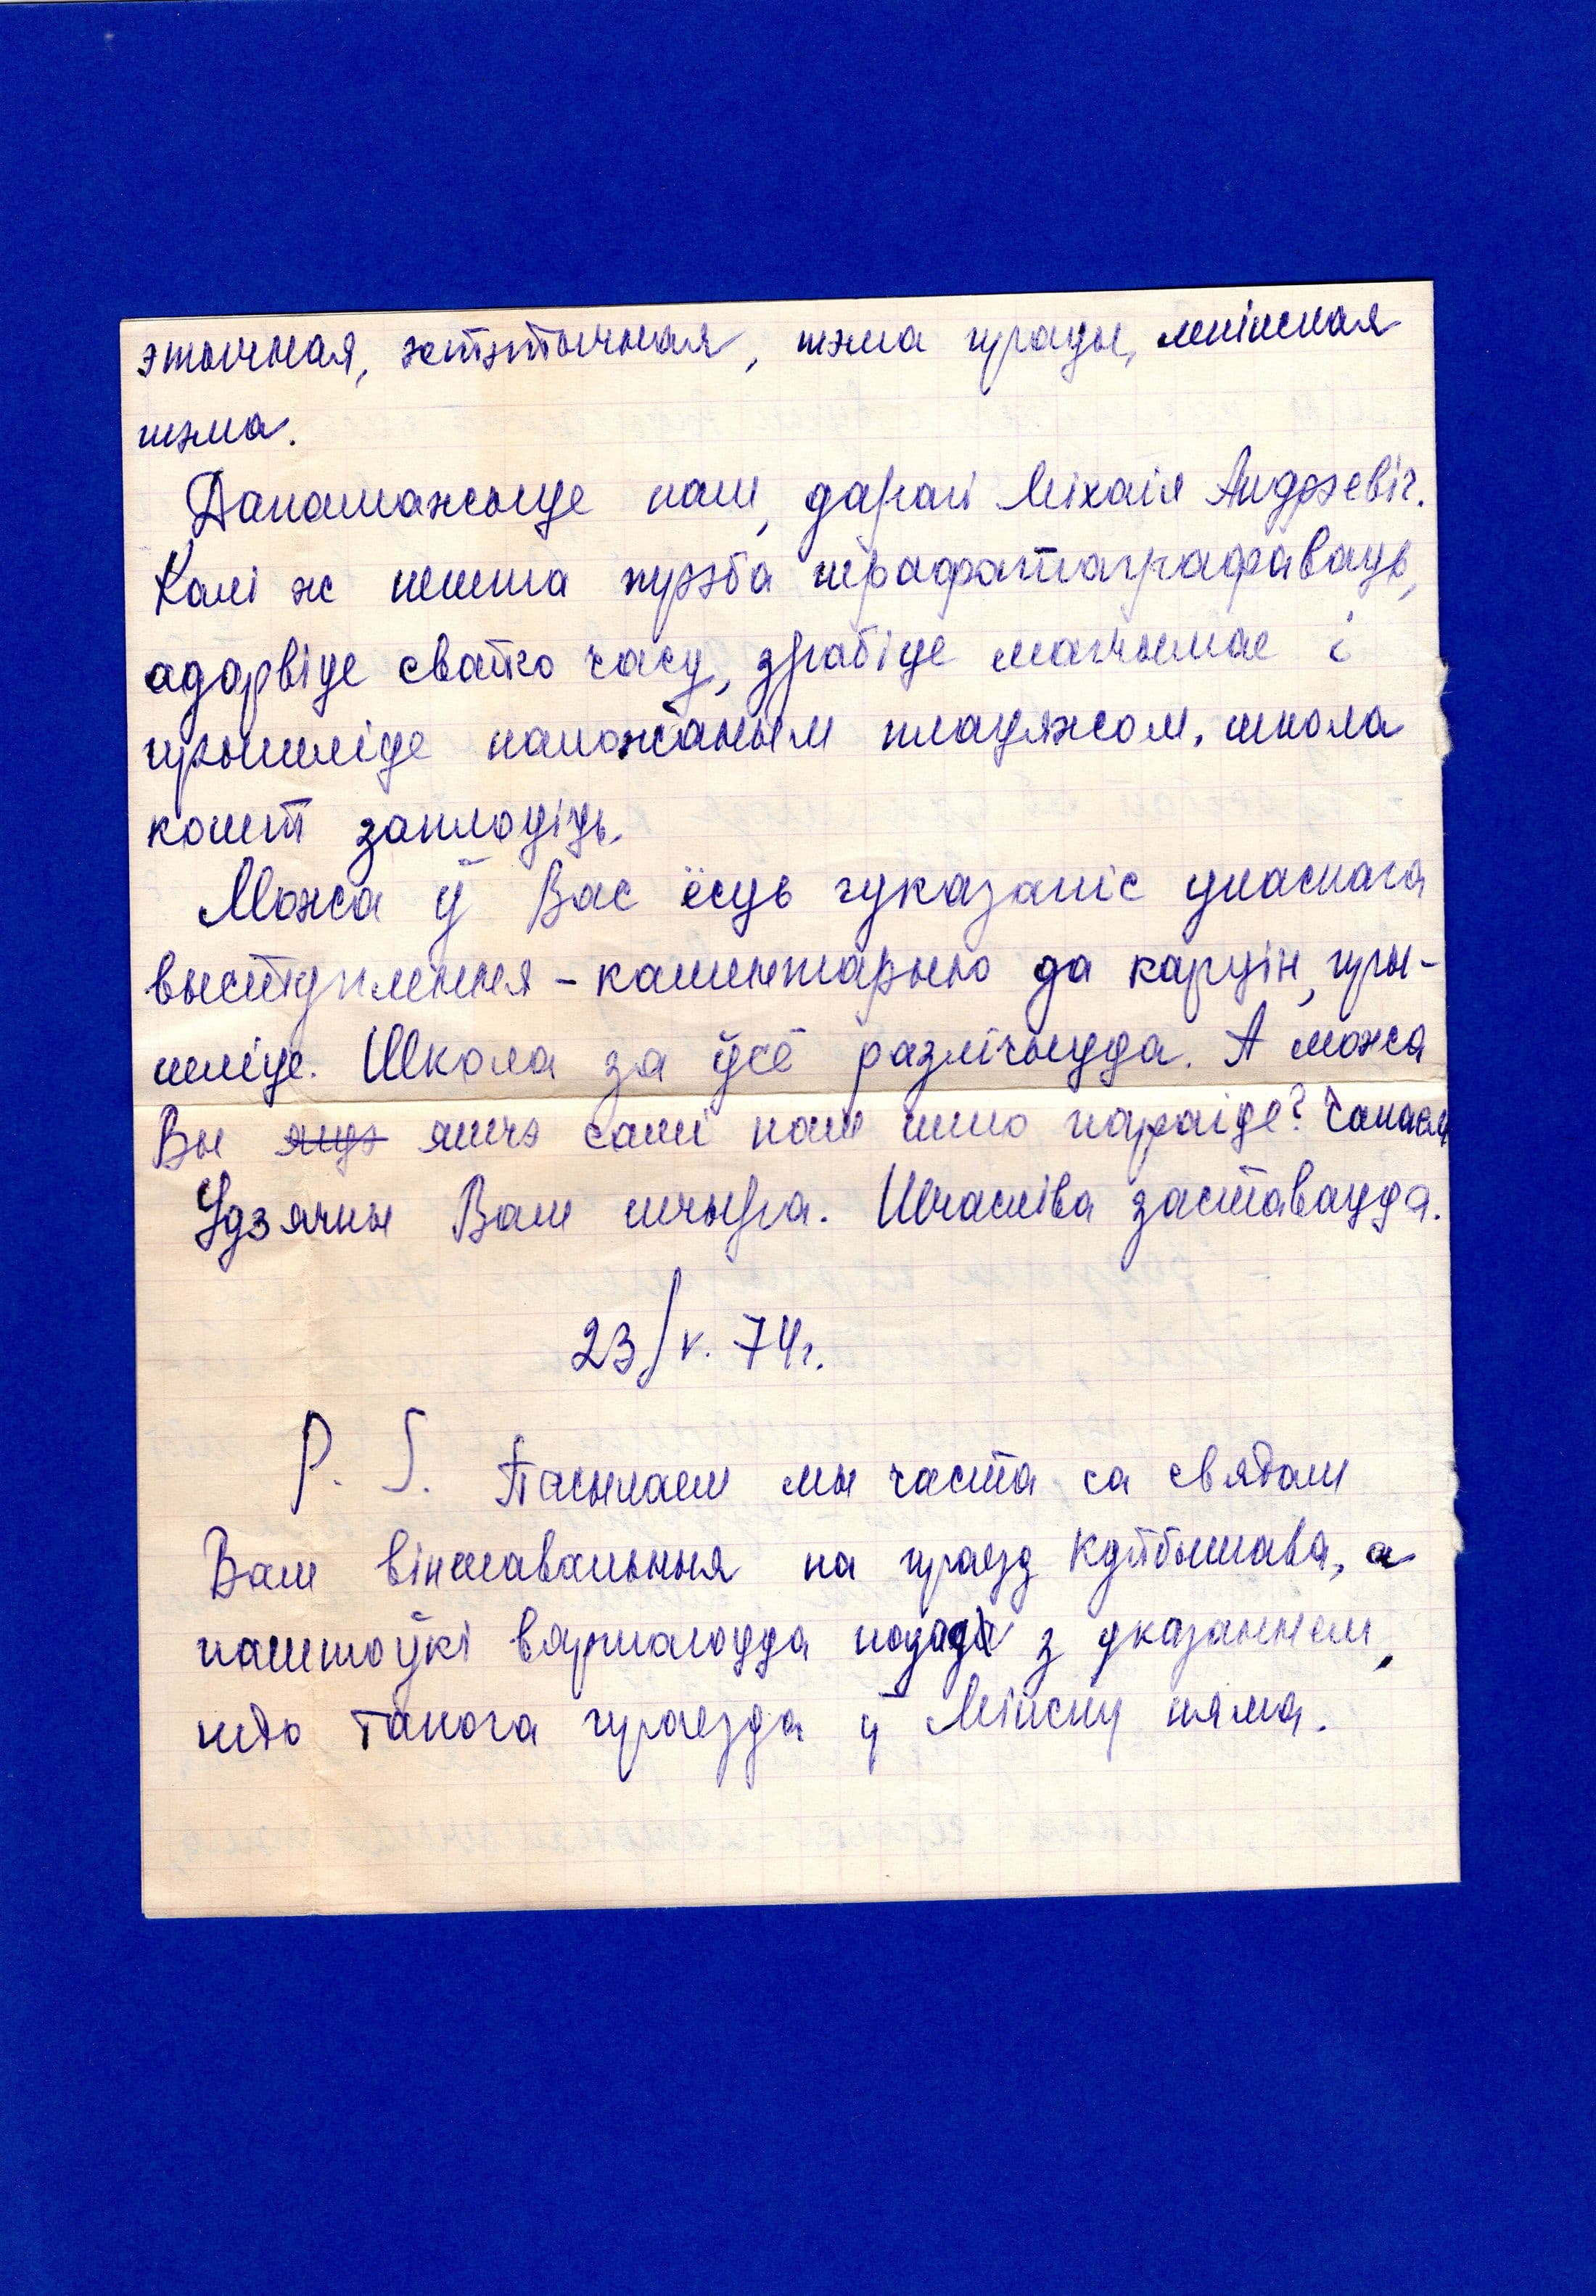 этычная, эстэтычная, тэма працы, ленінская
тэма.
Дапамажыце нам, дарагі Міхаіл Андрэевіч.
Калі ж нешта трэба перафатаграфаваць,
адарвіце свайго часу, зрабіце магчымае і
прышліце наложаным плацяжом, школа
кошт заплоціць.
Можа ў Вас ёсць рукапіс уласнага
выступлення - каментарыю да карцін, пры-
шліце. Школа за ўсё разлічыцца. А можа
Вы яшчэ самі нам што параіце? Чакаем
Удзячны Вам шчыра. Шчасліва заставацца.
23/V. 74г.
P. S. Пасылаем мы часта са святам
Вам віншавальныя на праезд Куйбышава, а
паштоўкі вяртаюцца назад з указаннем,
што такога праезда ў Мінску няма.